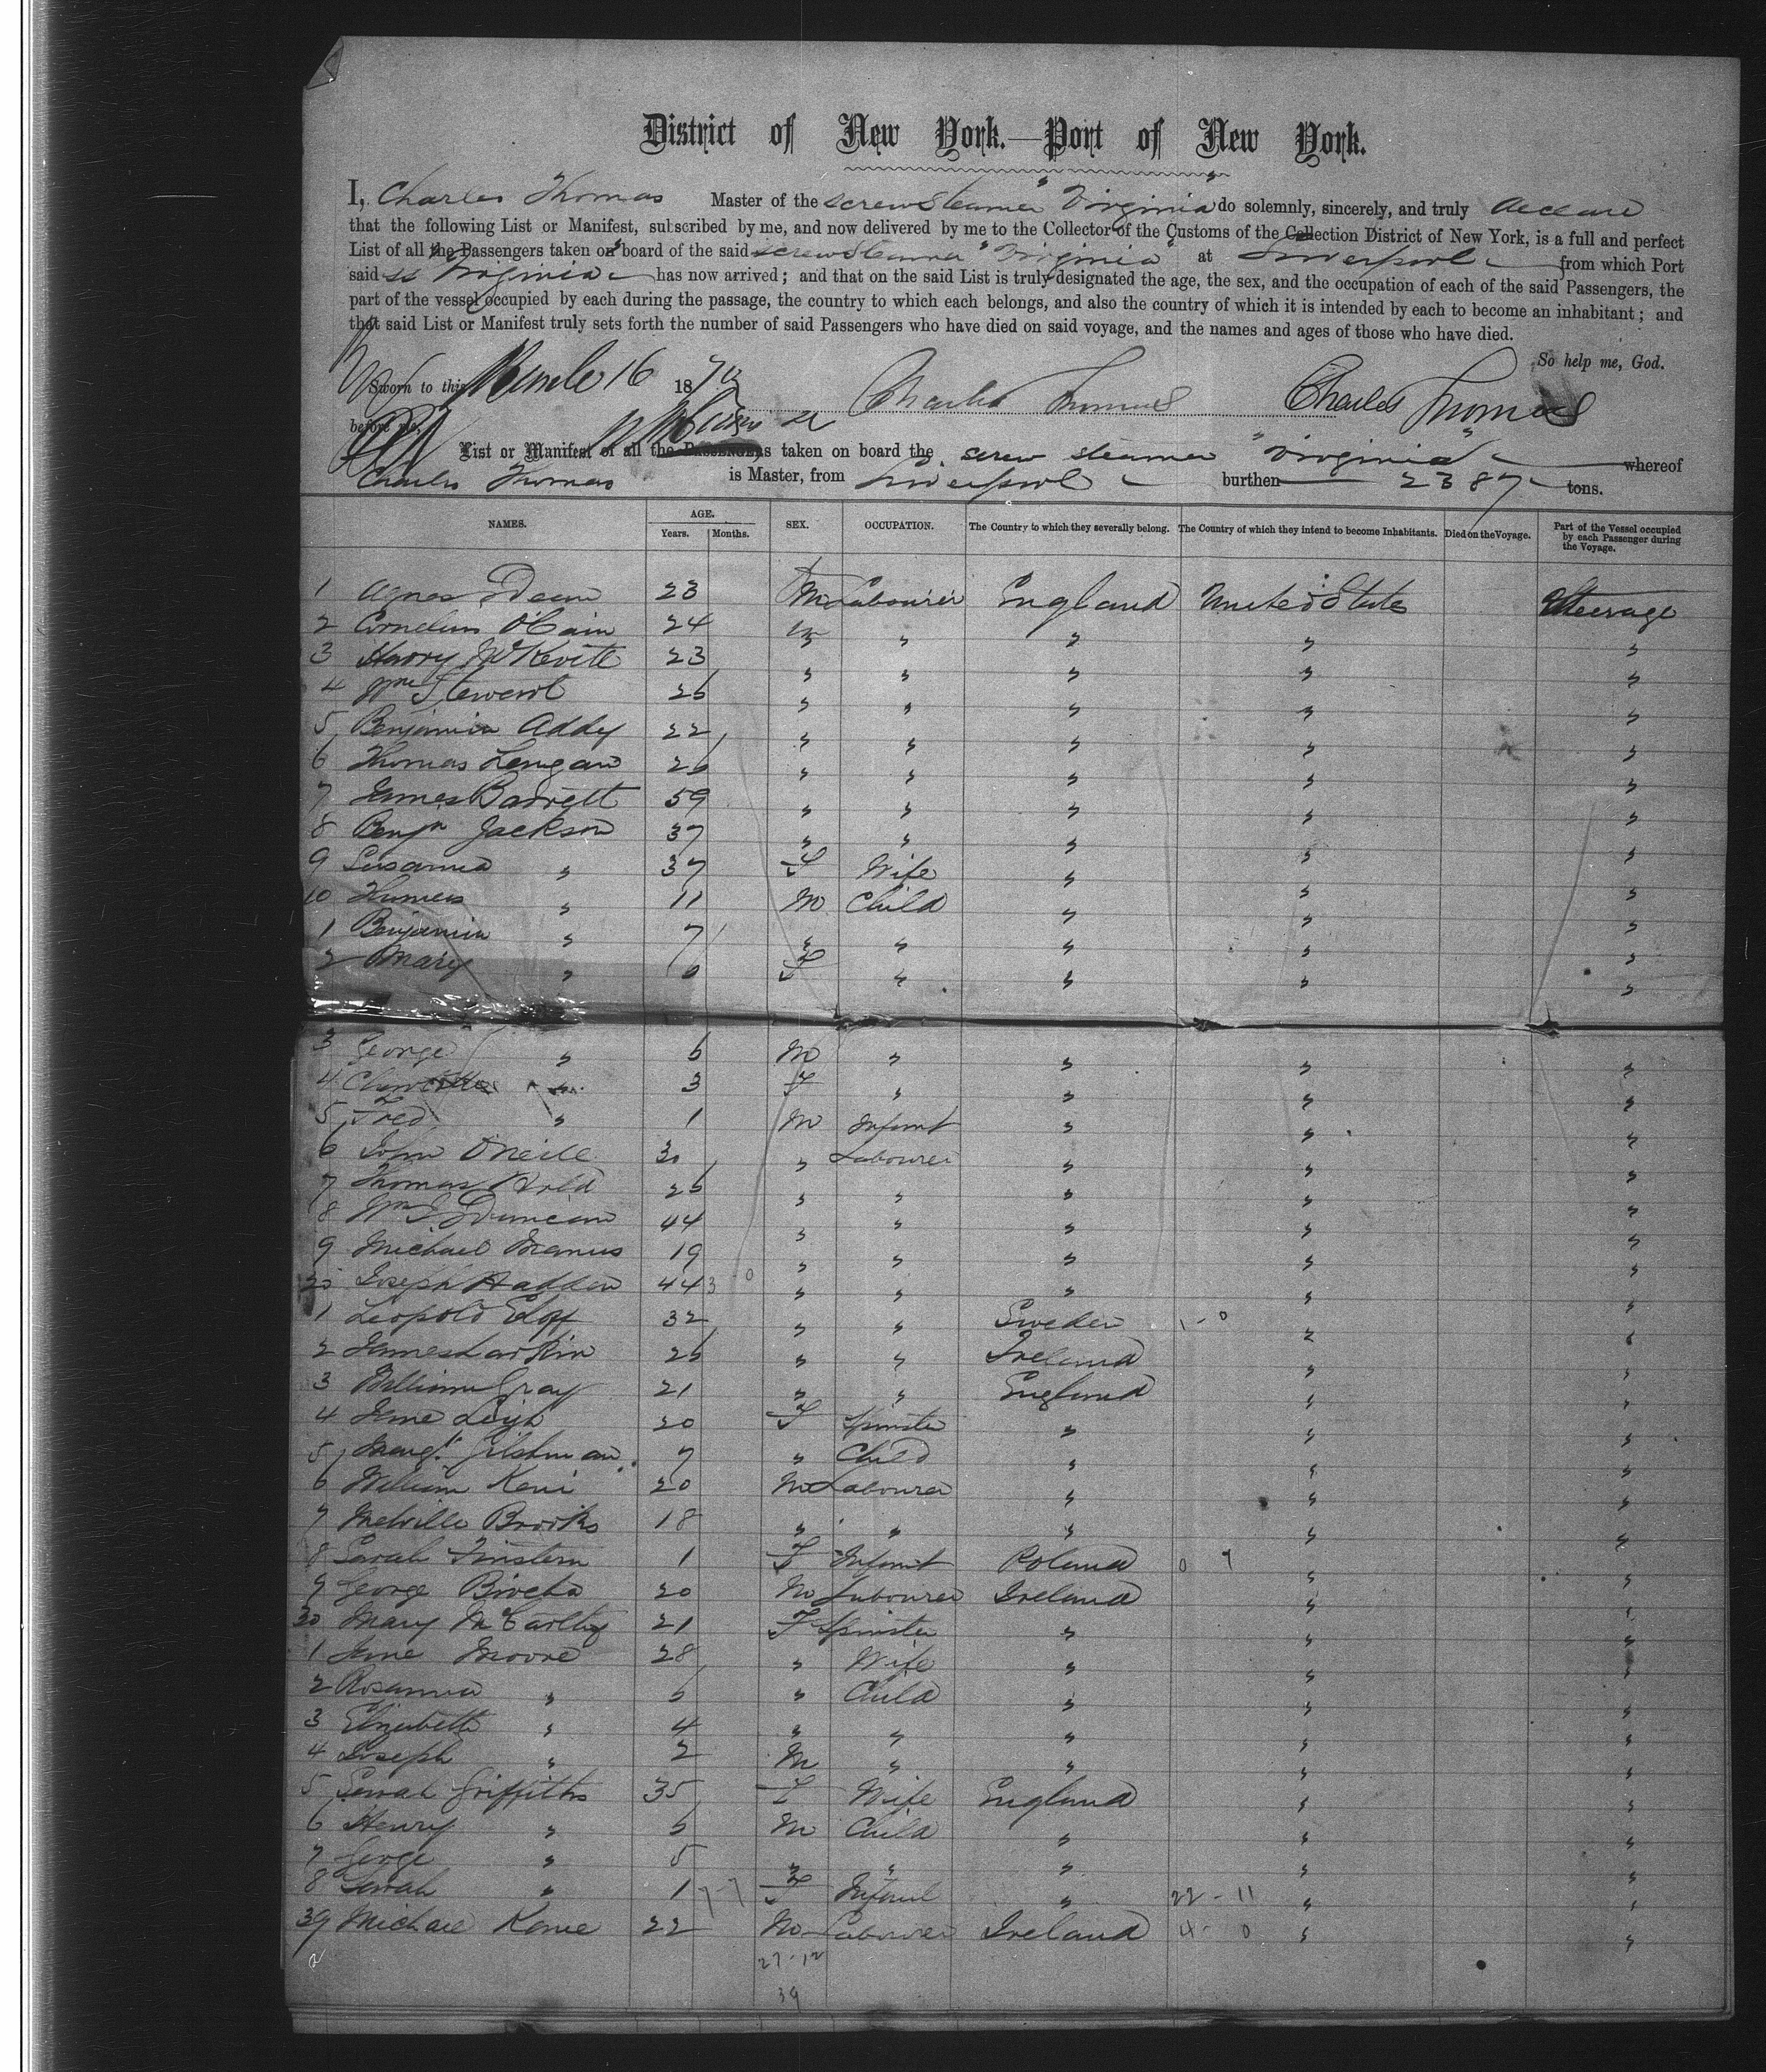 District of New York.—Port of New York.
I, Charles Thomas Master of the screw Steamer "Virginia" do solemnly, sincerely, and truly declare
that the following List or Manifest, subscribed by me, and now delivered by me to the Collector of the Customs of the Collection District of New York, is a full and perfect
List of all the Passengers taken on board of the said screw Steamer "Virginia" at Liverpool from which Port
said ss Virginia has now arrived; and that on the said List is truly designated the age, the sex, and the occupation of each of the said Passengers, the
part of the vessel occupied by each during the passage, the country to which each belongs, and also the country of which it is intended by each to become an inhabitant; and
that said List or Manifest truly sets forth the number of said Passengers who have died on said voyage, and the names and ages of those who have died.
So help me, God.
Sworn to this 16 1870 Charles Thomas Charles Thomas
before me,
List or Manifest of all the Passengers taken on board the screw steamer "Virginia" whereof
Charles Thomas is Master, from Liverpool burthen 2387 tons.
NAMES. AGE. SEX. OCCUPATION. The Country to which they severally belong. The Country of which they intend to become Inhabitants. Died on the Voyage. Part of the Vessel occupied by each Passenger during the Voyage.
Years. Months.
1 Agnes Dean 23 M Labourer England United States Steerage
2 Cornelius O'Cain 24 m " " " "
3 Harry McKevitt 23 " " " " "
4 Wm Stewart 26 " " " " "
5 Benjamin Addy 22 " " " " "
6 Thomas Lengan 26 " " " " "
7 James Barrett 59 " " " " "
8 Benjn Jackson 37 " " " " "
9 Susanna " 37 F Wife " " "
10 Thomas " 11 M Child " " "
1 Benjamin " 7 " " " " "
2 Mary " 6 F " " " "
3 George " 6 M " " " "
4 " 3 F " " " "
5 Fred " 1 M Infant " " "
6 John O'Neill 30 " Labourer " " "
7 Thomas 26 " " " " "
8 Wm J Duncan 44 " " " " "
9 Michael Manus 19 " " " " "
20 Joseph Hadden 44 3-0 " " " " "
1 Leopold 32 " " Sweden 1-0 " "
2 James Larkin 26 " " Ireland " "
3 William Gray 21 " " England " "
4 Jane Leigh 20 F Spinster " " "
5 Margt. Gilshman 7 " Child " " "
6 William 20 M Labourer " " "
7 Melville Brooks 18 " " " " "
8 Sarah 1 F Infant Poland 0 1 " "
9 George 20 M Labourer Ireland " "
30 Mary McCarthy 21 F Spinster " " "
1 Jane Moore 28 " Wife " " "
2 Rosanna " 6 " Child " " "
3 Elizabeth " 4 " " " " "
4 Joseph " 2 M " " " "
5 Sarah Griffiths 35 F Wife England " "
6 Henry " 6 M Child " " "
7 George " 5 " " " " "
8 Sarah " 1 7-7 F Infant " 22-11 " "
39 Michael Kane 22 M Labourer Ireland 4-0 " "
27-12
39